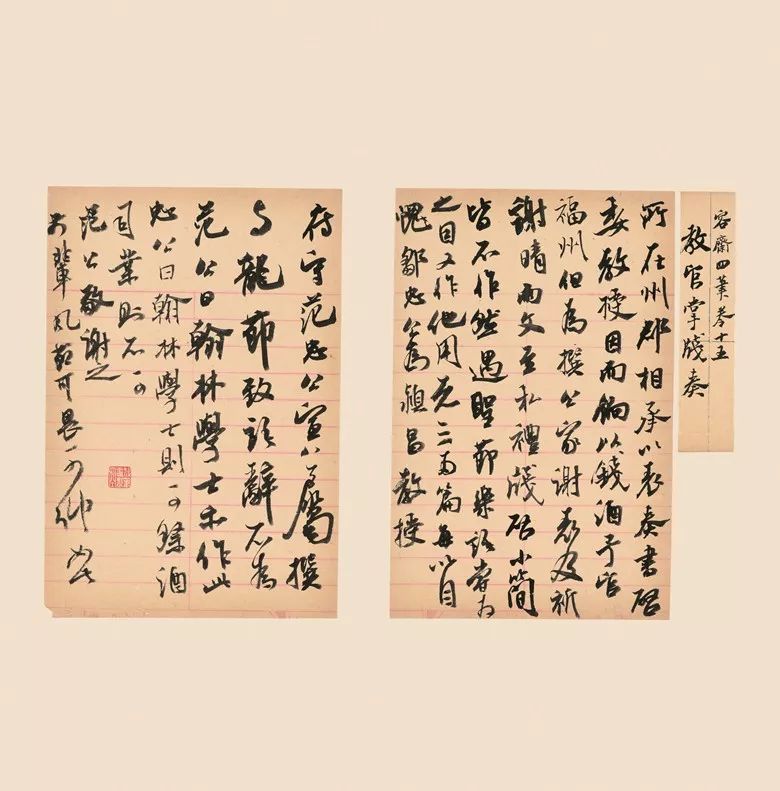 容齋四筆卷十五
教官掌牋奏
所在州郡相承以表奏書啓
委教授因而餉以錢酒予官
福州但為撰公家謝表及祈
謝晴雨文至私禮牋啓小簡
皆不作然遇聖節樂語嘗為
之因又作他用者三兩篇每以自
愧鄒忠公為潁昌教授
府守范忠宣公屬撰
興龍節致語辭不為
范公曰翰林學士亦作此
忠公曰翰林學士則可祭酒
司業則不可
范公敬謝之
前輩風節可畏可仰如此